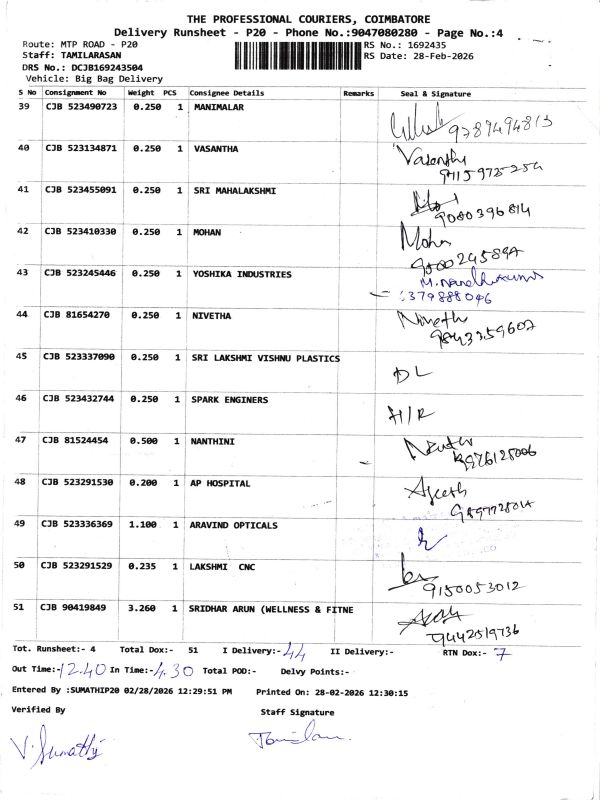 THE PROFESSIONAL COURIERS, COIMBATORE
Delivery Runsheet - P20 - Phone No.:9047080280 - Page No.:4
Route: MTP ROAD - P20 RS No.: 1692435
Staff: TAMILARASAN RS Date: 28-Feb-2026
DRS No.: DCJB169243504
Vehicle: Big Bag Delivery
S No Consignment No Weight PCS Consignee Details Remarks Seal & Signature
39 CJB 523490723 0.250 1 MANIMALAR
9789494813
40 CJB 523134871 0.250 1 VASANTHA Vasantha
41 CJB 523455091 0.250 1 SRI MAHALAKSHMI
9080396814
42 CJB 523410330 0.250 1 MOHAN Mohan
43 CJB 523245446 0.250 1 YOSHIKA INDUSTRIES
6379888046
44 CJB 81654270 0.250 1 NIVETHA Nivetha
9843359602
45 CJB 523337090 0.250 1 SRI LAKSHMI VISHNU PLASTICS
DL
46 CJB 523432744 0.250 1 SPARK ENGINERS
H/R
47 CJB 81524454 0.500 1 NANTHINI
48 CJB 523291530 0.200 1 AP HOSPITAL
49 CJB 523336369 1.100 1 ARAVIND OPTICALS
50 CJB 523291529 0.235 1 LAKSHMI CNC
9150053012
51 CJB 90419849 3.260 1 SRIDHAR ARUN (WELLNESS & FITNE
9442519736
Tot. Runsheet:- 4 Total Dox:- 51 I Delivery:- 44 II Delivery:- RTN Dox:- 7
Out Time:- 12.40 In Time:- 4.30 Total POD:- Delvy Points:-
Entered By :SUMATHIP20 02/28/2026 12:29:51 PM Printed On: 28-02-2026 12:30:15
Verified By Staff Signature
V. Sumathi